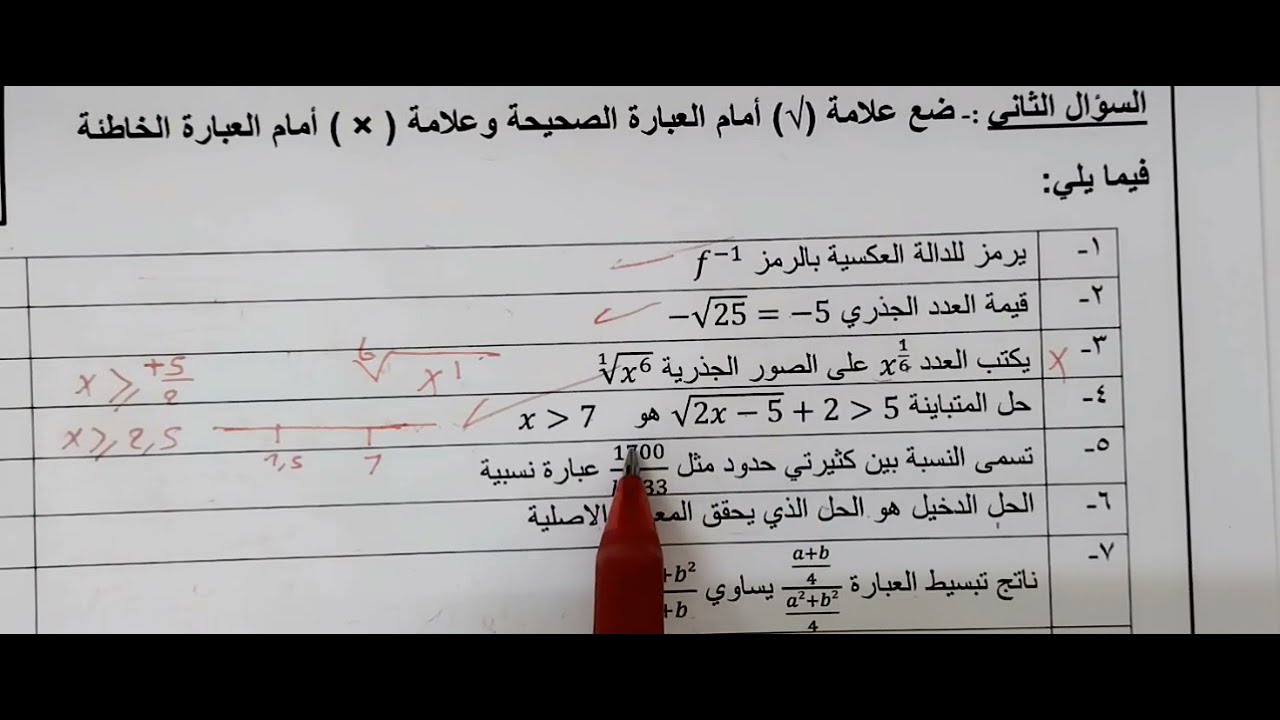 السؤال الثاني :- ضع علامة (√) أمام العبارة الصحيحة وعلامة ( × ) أمام العبارة الخاطئة
فيما يلي:
١- يرمز للدالة العكسية بالرمز f⁻¹
٢- قيمة العدد الجذري −√25 = −5
٣- يكتب العدد x^(1/6) على الصور الجذرية ¹√x⁶
x
⁶√x¹
x ≥ +5/2
٤- حل المتباينة √(2x − 5) + 2 > 5 هو x > 7
x ≥ 2,5
7
٥- تسمى النسبة بين كثيرتي حدود مثل 1700 عبارة نسبية
٦- الحل الدخيل هو الحل الذي يحقق الاصلية
٧- ناتج تبسيط العبارة ((a+b)/4)/((a²+b²)/4) يساوي +b² +b